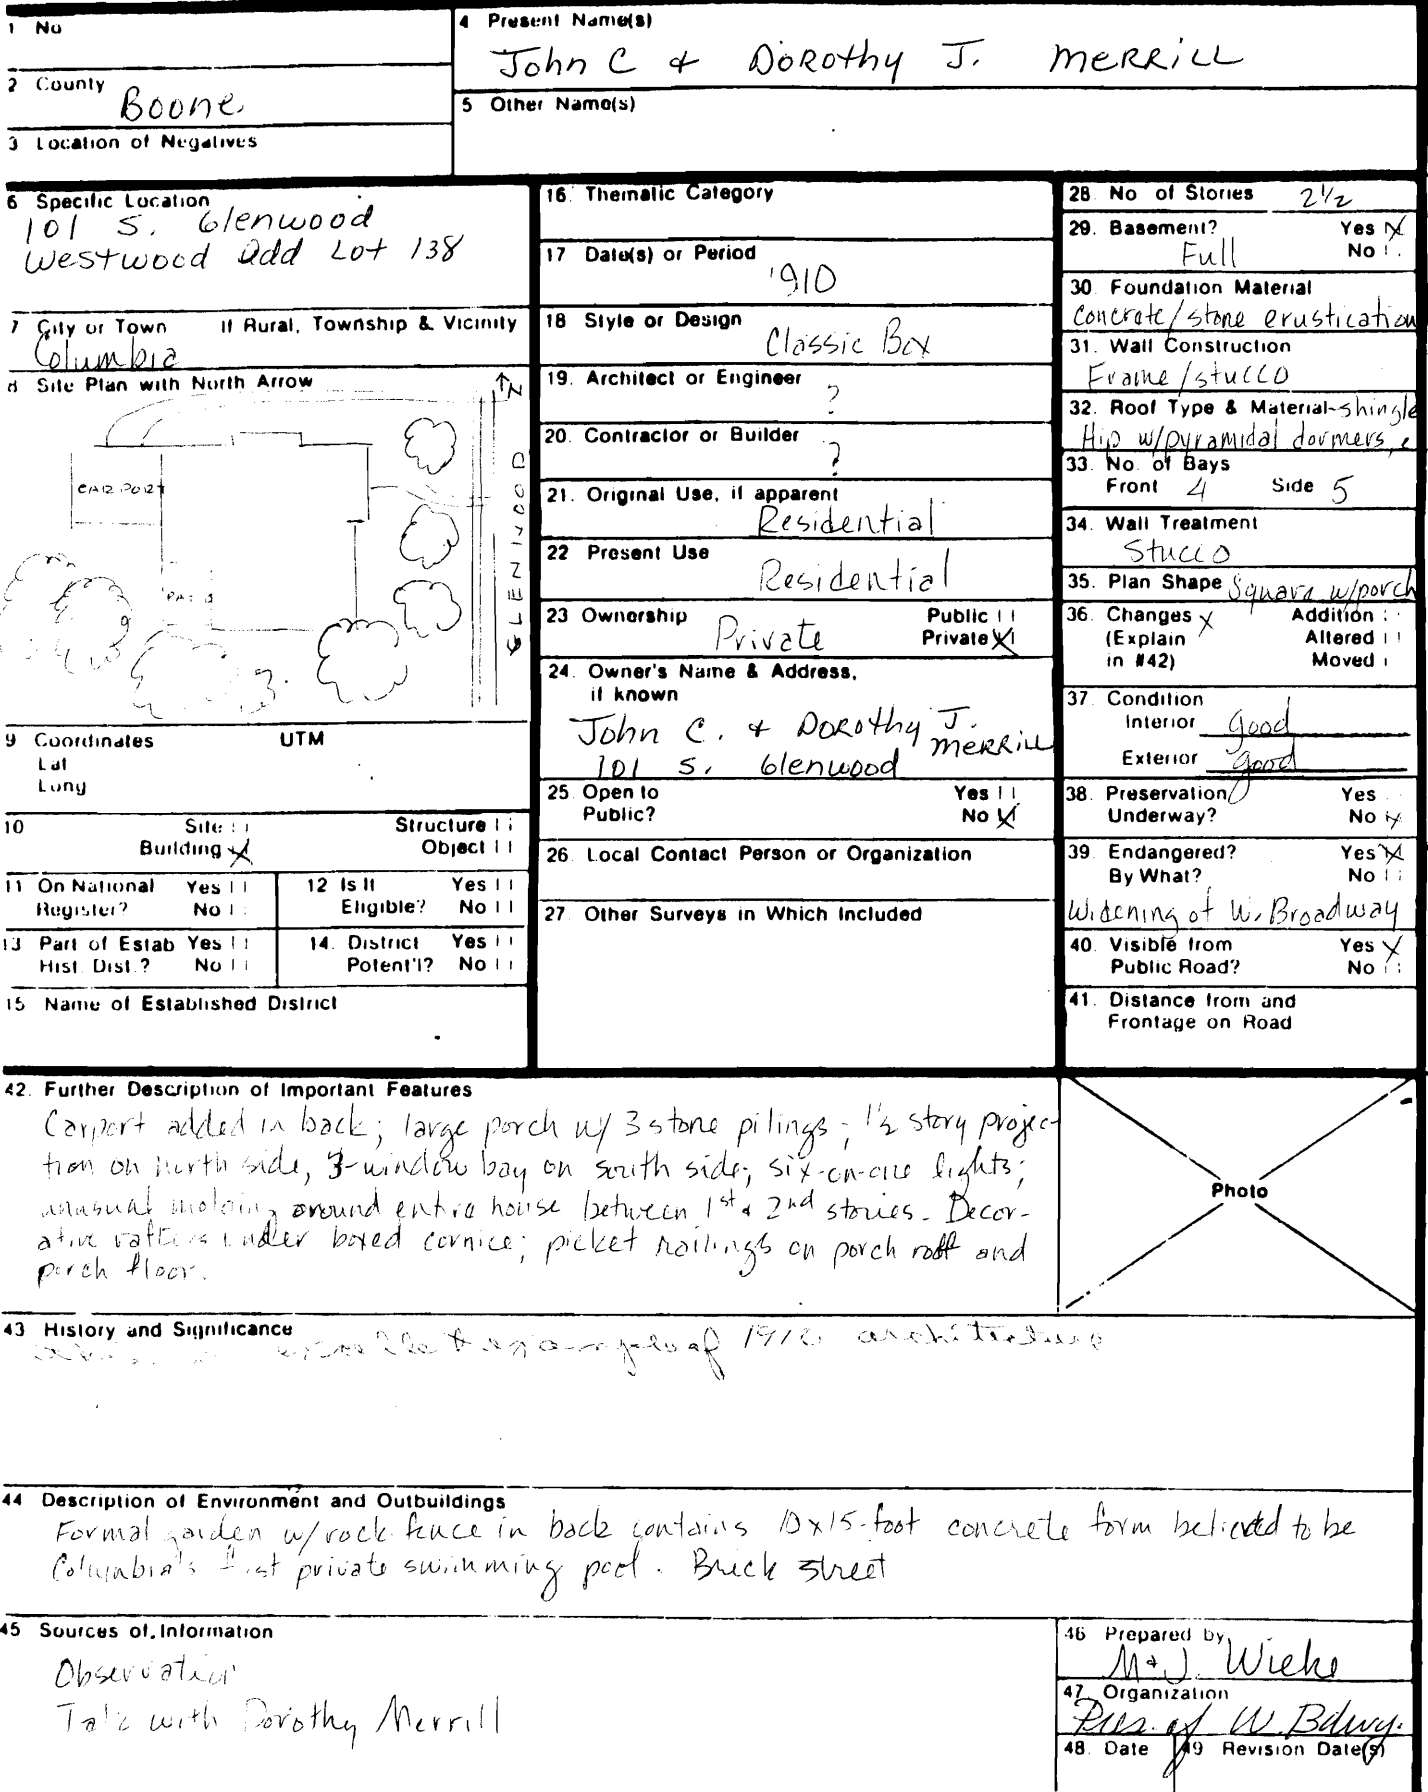 1 No
4 Present Name(s)
John C & Dorothy J. Merrill
2 County
Boone
5 Other Name(s)
3 Location of Negatives
6 Specific Location
101 S. Glenwood
Westwood Add Lot 138
7 City or Town If Rural, Township & Vicinity
Columbia
8 Site Plan with North Arrow
N
CARPORT
GLENWOOD
9 Coordinates UTM
Lat
Long
10 Site
Structure
Building X
Object
11 On National Register? Yes No
12 Is It Eligible? Yes No
13 Part of Estab Hist. Dist.? Yes No
14. District Potent'l? Yes No
15 Name of Established District
16. Thematic Category
17 Date(s) or Period
1910
18 Style or Design
Classic Box
19. Architect or Engineer
?
20. Contractor or Builder
?
21. Original Use, if apparent
Residential
22 Present Use
Residential
23 Ownership Public
Private Private X
24. Owner's Name & Address,
if known
John C. & Dorothy J.
Merrill
101 S. Glenwood
25. Open to Yes
Public? No X
26. Local Contact Person or Organization
27. Other Surveys in Which Included
28. No of Stories 2½
29. Basement? Yes X
Full No
30. Foundation Material
Concrete/stone erustication
31. Wall Construction
Frame/stucco
32. Roof Type & Material-shingle
Hip w/pyramidal dormers,
33. No. of Bays
Front 4 Side 5
34. Wall Treatment
Stucco
35. Plan Shape Square w/porch
36. Changes X Addition
(Explain Altered
in #42) Moved
37. Condition
Interior good
Exterior good
38. Preservation Yes
Underway? No X
39. Endangered? Yes X
By What? No
Widening of W. Broadway
40. Visible from Yes X
Public Road? No
41. Distance from and
Frontage on Road
42. Further Description of Important Features
Carport added in back; large porch w/ 3 stone pilings; 1½ story projec-
tion on north side, 3-window bay on south side; six-on-one lights;
unusual molding around entire house between 1st & 2nd stories. Decor-
ative rafters under boxed cornice; picket railings on porch roof and
porch floor.
Photo
43 History and Significance
of architecture
44 Description of Environment and Outbuildings
Formal garden w/rock fence in back contains 10x15-foot concrete form believed to be
Columbia's first private swimming pool. Brick street
45 Sources of Information
Observation
Talk with Dorothy Merrill
46 Prepared by
M & J. Wiehe
47. Organization
Pres. of W. Bdwy.
48. Date 49 Revision Date(s)